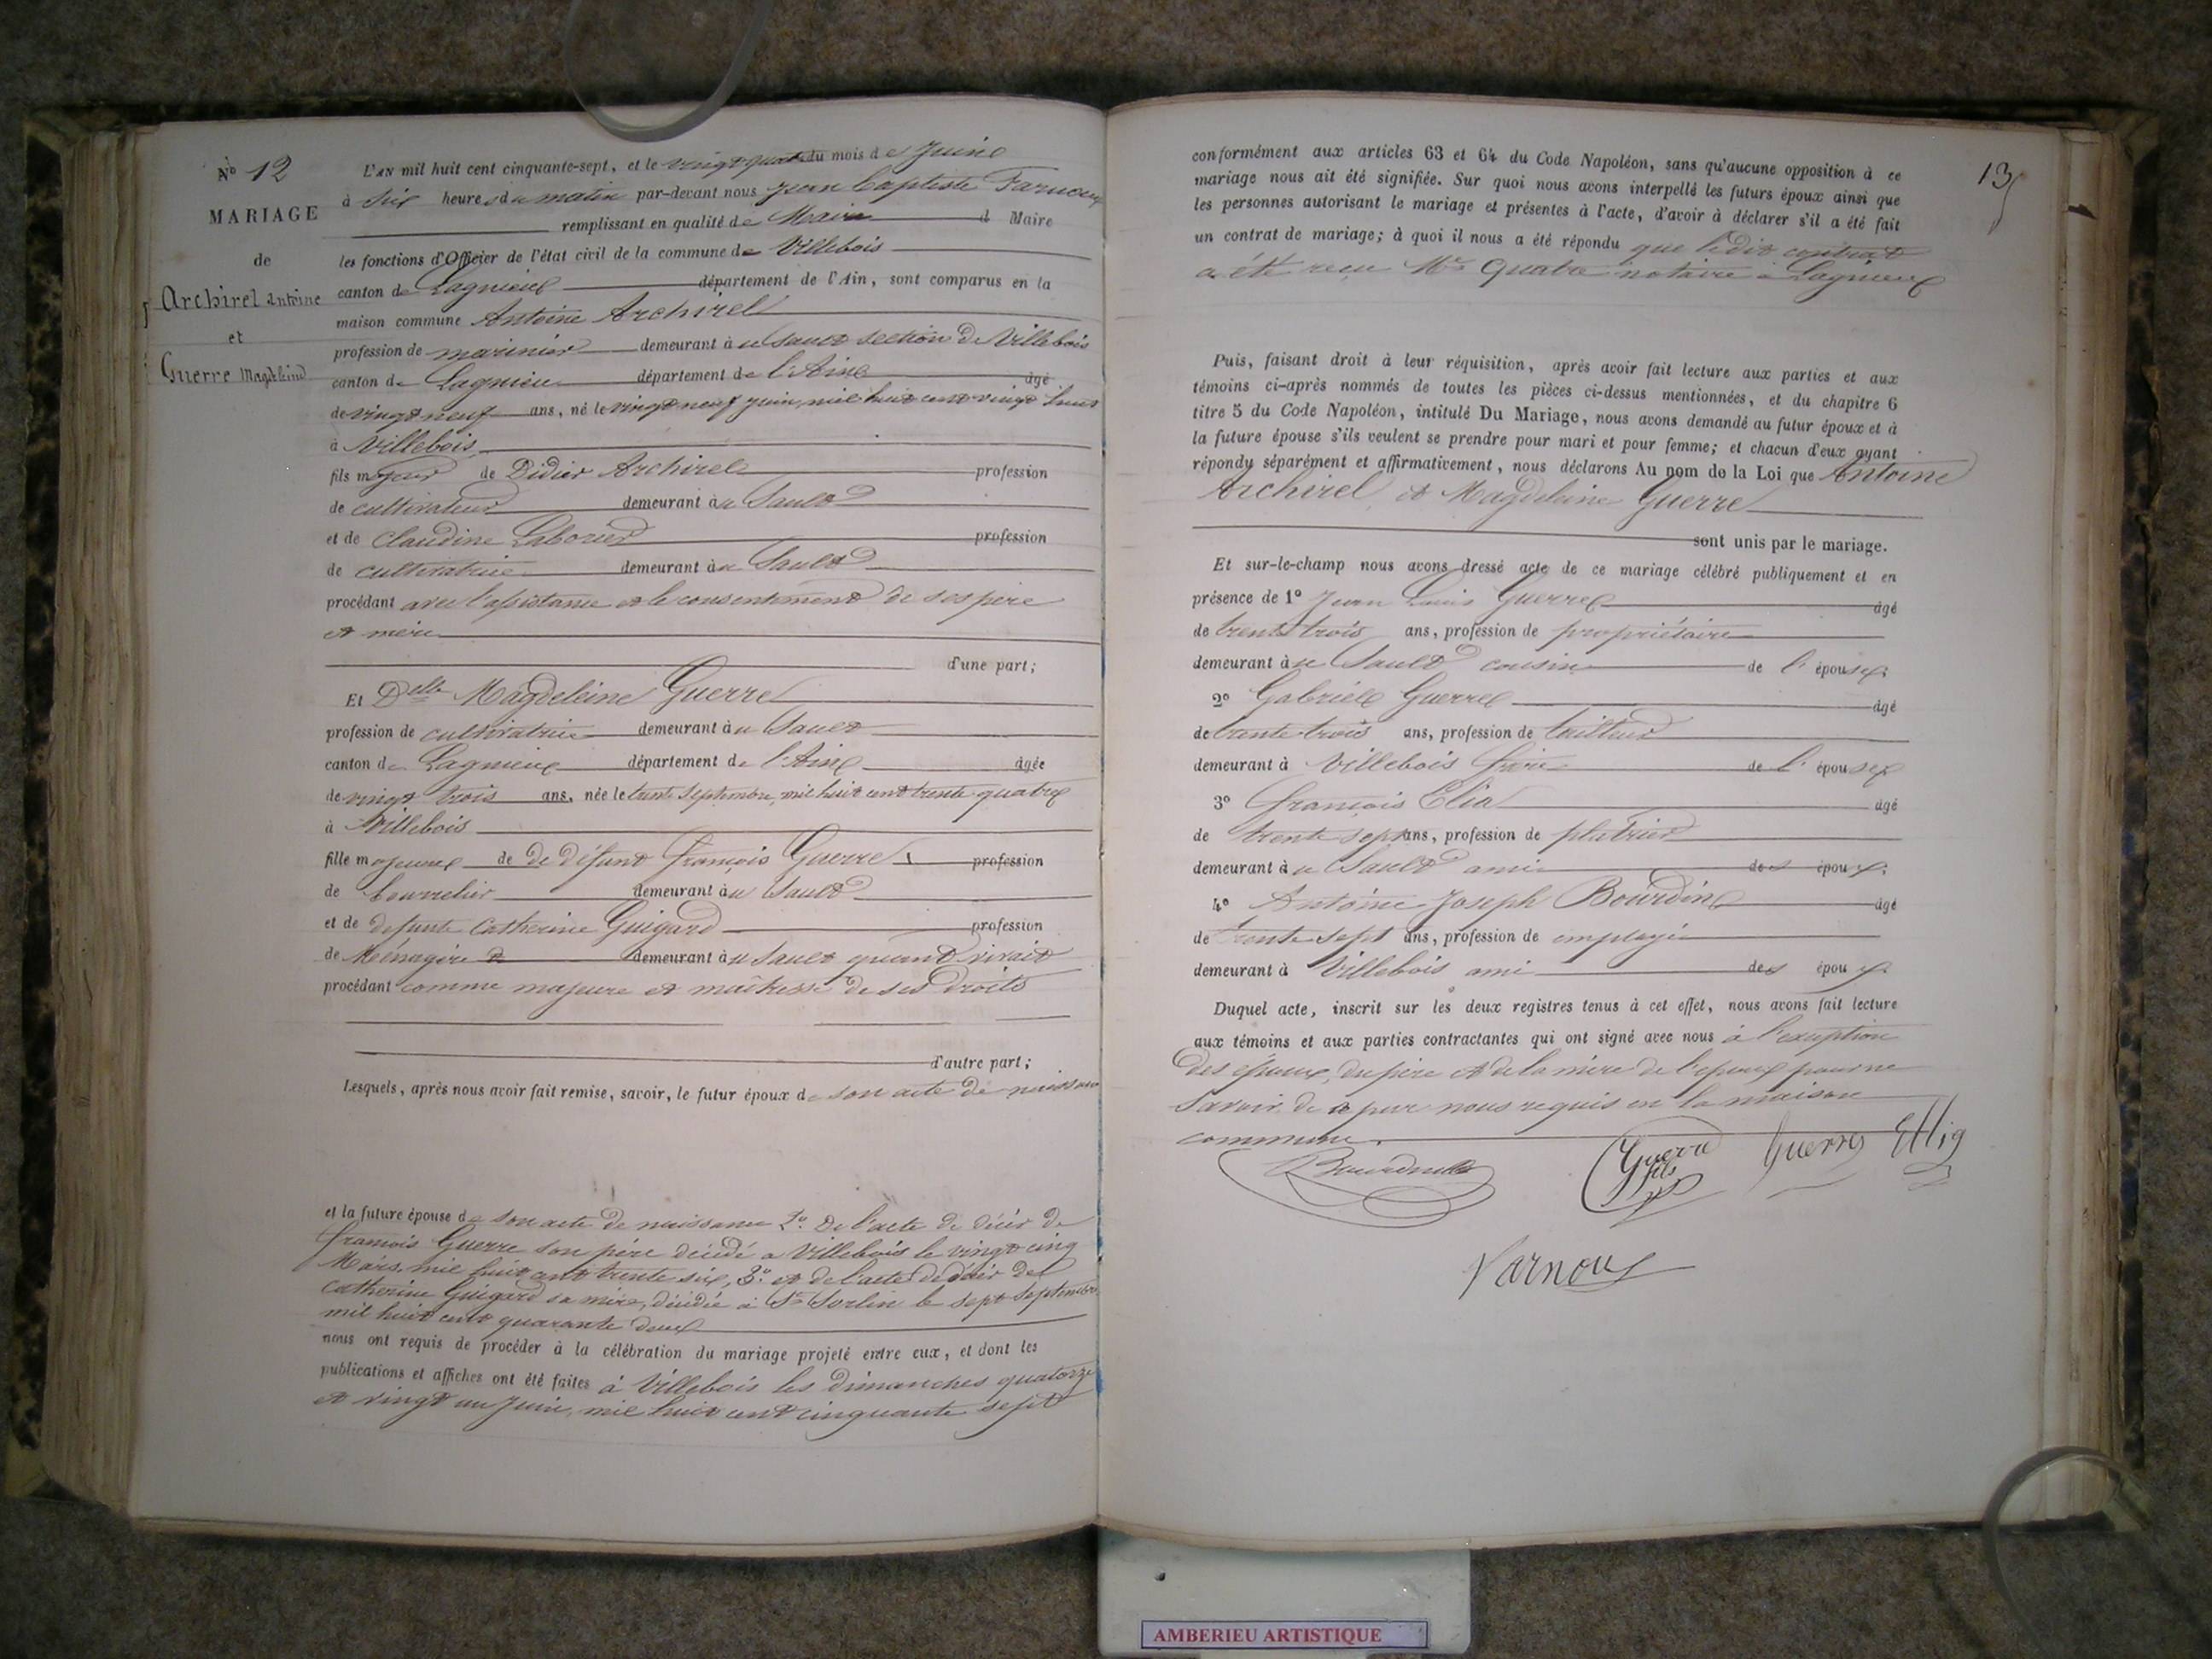 No 12
MARIAGE
de
Archirel Antoine
et
Guerre Magdeleine
L'AN mil huit cent cinquante-sept, et le vingt quatre du mois de Juin
à six heures du matin par-devant nous Jean Baptiste Farnoux
remplissant en qualité de Maire d Maire
les fonctions d'Officier de l'état civil de la commune de Villebois
canton de Lagnieu département de l'Ain, sont comparus en la
maison commune Antoine Archirel
profession de marinier demeurant à u Sault section de Villebois
canton de Lagnieu département de l'Ain âgé
de vingt neuf ans, né le vingt neuf juin mil huit cent vingt huit
à Villebois
fils majeur de Didier Archirel profession
de cultivateur demeurant à u Sault
et de Claudine Laborier profession
de cultivatrice demeurant à u Sault
procédant avec l'assistance et le consentement de ses père
et mère
d'une part;
Et Delle Magdeleine Guerre
profession de cultivatrice demeurant à u Sault
canton de Lagnieu département de l'Ain âgée
de vingt trois ans, née le trente Septembre, mil huit cent trente quatre
à Villebois
fille majeure de De défunt François Guerre profession
de bourrelier demeurant à u Sault
et de defunte Catherine Guigard profession
de Ménagère demeurant à u Sault quand vivait
procédant comme majeure et maîtresse de ses droits
d'autre part;
Lesquels, après nous avoir fait remise, savoir, le futur époux de son acte de naissance
et la future épouse de son acte de naissance 2º. De l'acte de décès de
François Guerre son père décédé a Villebois le vingt cinq
Mars, mil huit cent trente six, 3º. et de l'acte de décès de
Catherine Guigard sa mère, décédée à St Sorlin le sept Septembre
mil huit cent quarante deux
nous ont requis de procéder à la célébration du mariage projeté entre eux, et dont les
publications et affiches ont été faites à Villebois les dimanches quatorze
et vingt un juin, mil huit cent cinquante sept
13
conformément aux articles 63 et 64 du Code Napoléon, sans qu'aucune opposition à ce
mariage nous ait été signifiée. Sur quoi nous avons interpellé les futurs époux ainsi que
les personnes autorisant le mariage et présentes à l'acte, d'avoir à déclarer s'il a été fait
un contrat de mariage; à quoi il nous a été répondu que le dit contrat
a été reçu Me Quatre notaire a Lagnieu
Puis, faisant droit à leur réquisition, après avoir fait lecture aux parties et aux
témoins ci-après nommés de toutes les pièces ci-dessus mentionnées, et du chapitre 6
titre 5 du Code Napoléon, intitulé Du Mariage, nous avons demandé au futur époux et à
la future épouse s'ils veulent se prendre pour mari et pour femme; et chacun d'eux ayant
répondu séparément et affirmativement, nous déclarons Au nom de la Loi que Antoine
Archirel et Magdeleine Guerre
sont unis par le mariage.
Et sur-le-champ nous avons dressé acte de ce mariage célébré publiquement et en
présence de 1º Jean Louis Guerre âgé
de trente trois ans, profession de propriétaire
demeurant à u Sault cousin de l' épouse
2º Gabriel Guerre âgé
de trente trois ans, profession de tailleur
demeurant à Villebois frère de l' épouse
3º François Elia âgé
de trente sept ans, profession de platrier
demeurant à u Sault ami des époux
4º Antoine Joseph Bourdin âgé
de trente sept ans, profession de employé
demeurant à Villebois ami des époux
Duquel acte, inscrit sur les deux registres tenus à cet effet, nous avons fait lecture
aux témoins et aux parties contractantes qui ont signé avec nous à l'exeption
des époux, du père et de la mère de l'epoux pour ne
Savoir de ce par nous requis en la maison
commune.
Bourdin Guerre fils Guerre
Farnoux
AMBERIEU ARTISTIQUE